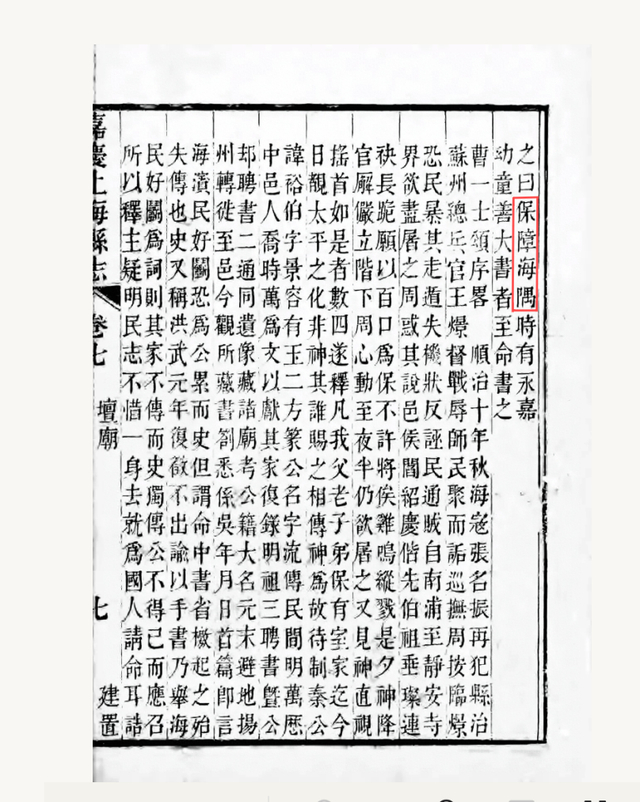 之曰保障海隅時有永嘉
幼童善大書者至命書之
曹一士頌序畧　順治十年秋海寇張名振再犯縣治
蘇州總兵官王燝督戰辱師民聚而詬巡撫周按臨燝
恐民暴其走遁失機狀反誣民通賊自南浦至靜安寺
界欲盡屠之周惑其說邑侯閻紹慶偕先伯祖垂璨連
袂長跪願以百口爲保不許將俟雞鳴縱戮是夕神降
官廨儼立階下周心動至夜半仍欲屠之又見神直視
搖首如是者數四遂釋凡我父老子弟保有室家迄今
日覩太平之化非神其誰賜之相傳神爲故待制秦公
諱裕伯字景容有王二方篆公名字流傳民間明萬厯
中邑人喬時萬爲文以獻其家復錄明祖三聘書曁公
却聘書二通同遺像藏諸廟考公籍大名元末避地揚
州轉徙至邑今觀所藏書劄悉係吳年月日首篇卽言
海濱民好鬭恐爲公累而史但謂命中書省檄起之殆
失傳也史又稱洪武元年復徵不出諭以手書乃舉海
民好鬭爲詞則其家不傳而史獨傳公不得已而應召
所以釋主疑明民志不惜一身去就爲國人請命耳誥
嘉慶上海縣志　卷七　壇廟　七　建置